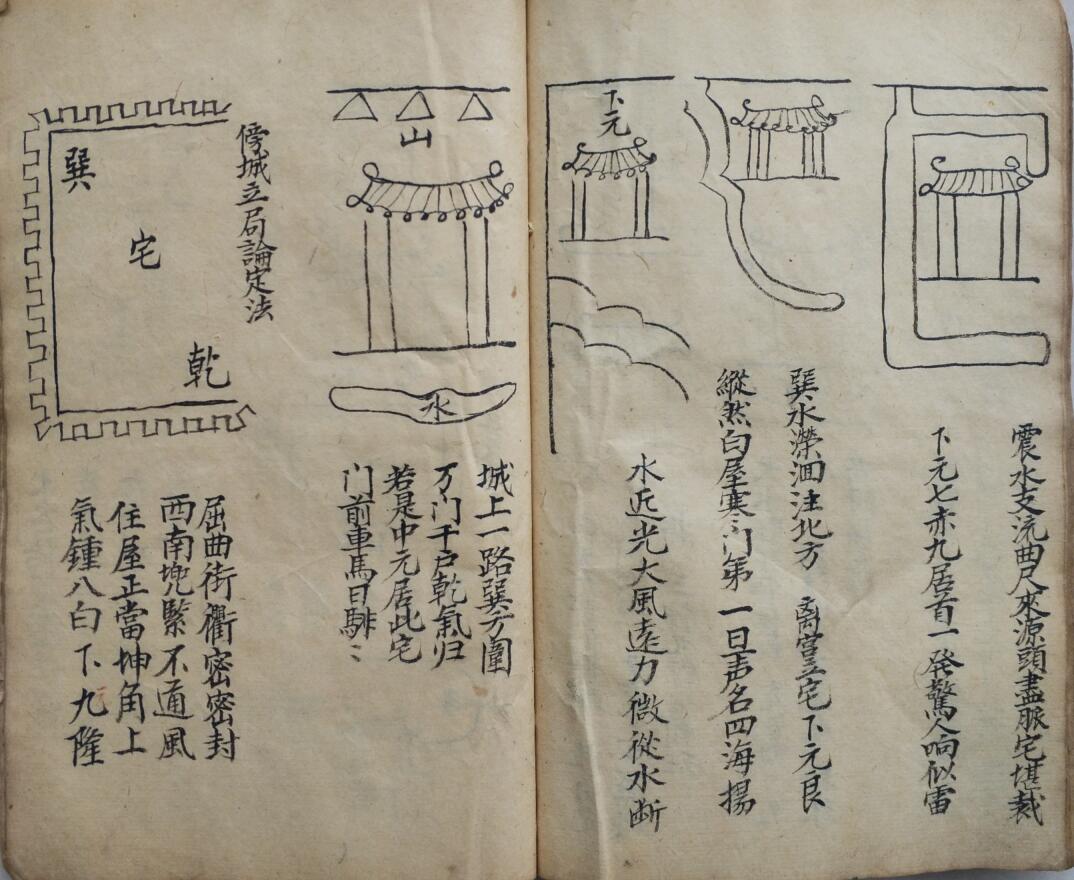 震水支流曲尺來源頭盡脈宅堪裁
下元七赤九居首一發驚人响似雷
巽水瀠洄注北方 离宮立宅下元良
縱然白屋寒门第 一旦声名四海揚
下元
水近光大風遠力微從水断
山
水
城上一路巽方圍
万门千戶乾氣归
若是中元居此宅
门前車馬日騑〻
傍城立局論定法
巽
宅
乾
屈曲街衢密密封
西南兜緊不通風
住屋正當坤角上
氣鍾八白下九隆